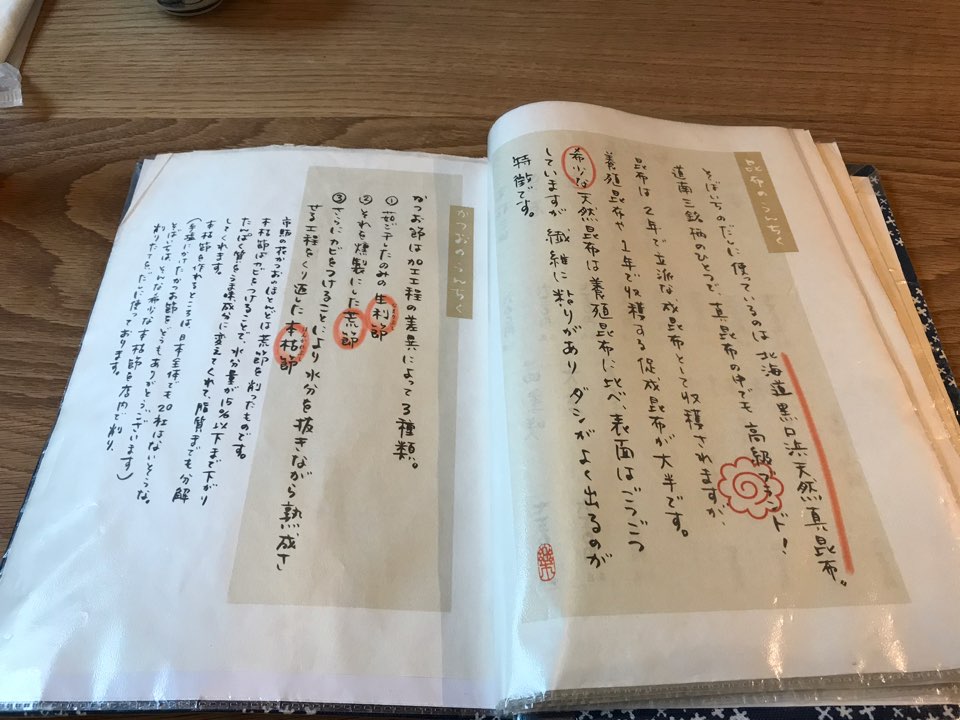 昆布のうんちく
そばいちのだしに使っているのは 北海道黒口浜天然真昆布。
道南三銘柄のひとつで、真昆布の中でも 高級ブランド！
昆布は 2年で立派な成昆布として収穫されますが、
養殖昆布や 1年で収穫する促成昆布が大半です。
希少な天然昆布は養殖昆布に比べ、表面はごつごつ
していますが 繊維に粘りがあり ダシがよく出るのが
特徴です。
かつおのうんちく
かつお節は加工工程の差異によって3種類。
① 茹でしたのみの 生利節
② それを燻製にした 荒節
③ さらにカビをつけることにより 水分を抜きながら 熟成さ
せる工程をくり返した 本枯節
市販の花かつおのほとんどは荒節を削ったものです。
本枯節はカビをつけることで、水分量が15%以下まで下がり
たんぱく質をうま味成分に変えてくれて、脂質までも分解
してくれます。
本枯節を作れるところは、日本全体でも20社はないそうな。
(手塩にかけたかつお節を、どうもありがとうございます)
そばいちは、そんな希少な本枯節を店内で削り、
削りたてをだしに使っております。